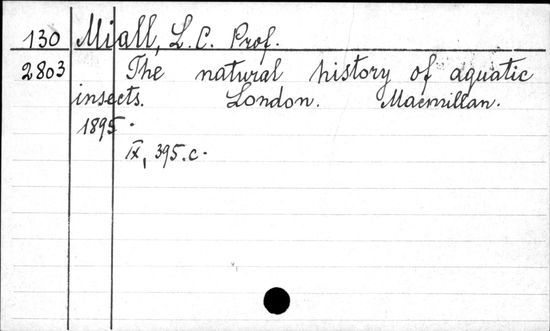 130 Miall, L.C. Prof.
2803 The natural history of aquatic
insects. London. Macmillan.
1895.
IX, 395.c.